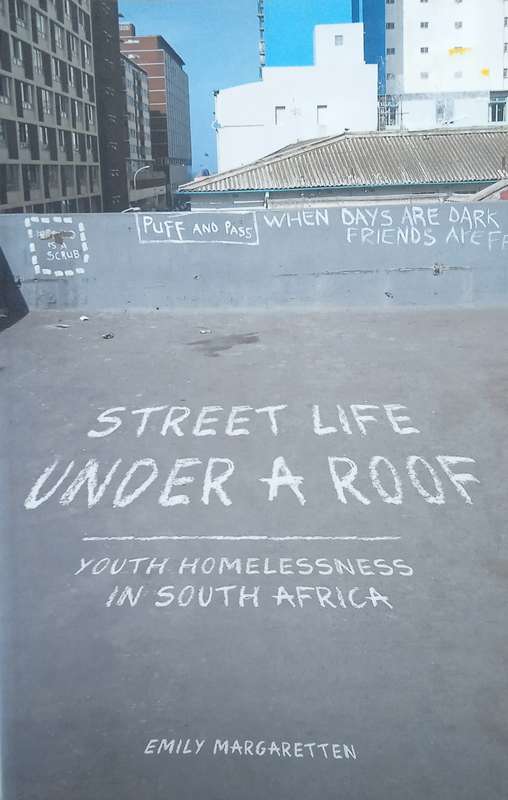 IS A
SCRUB
PUFF AND PASS
WHEN DAYS ARE DARK
FRIENDS
STREET LIFE
UNDER A ROOF
YOUTH HOMELESSNESS
IN SOUTH AFRICA
EMILY MARGARETTEN